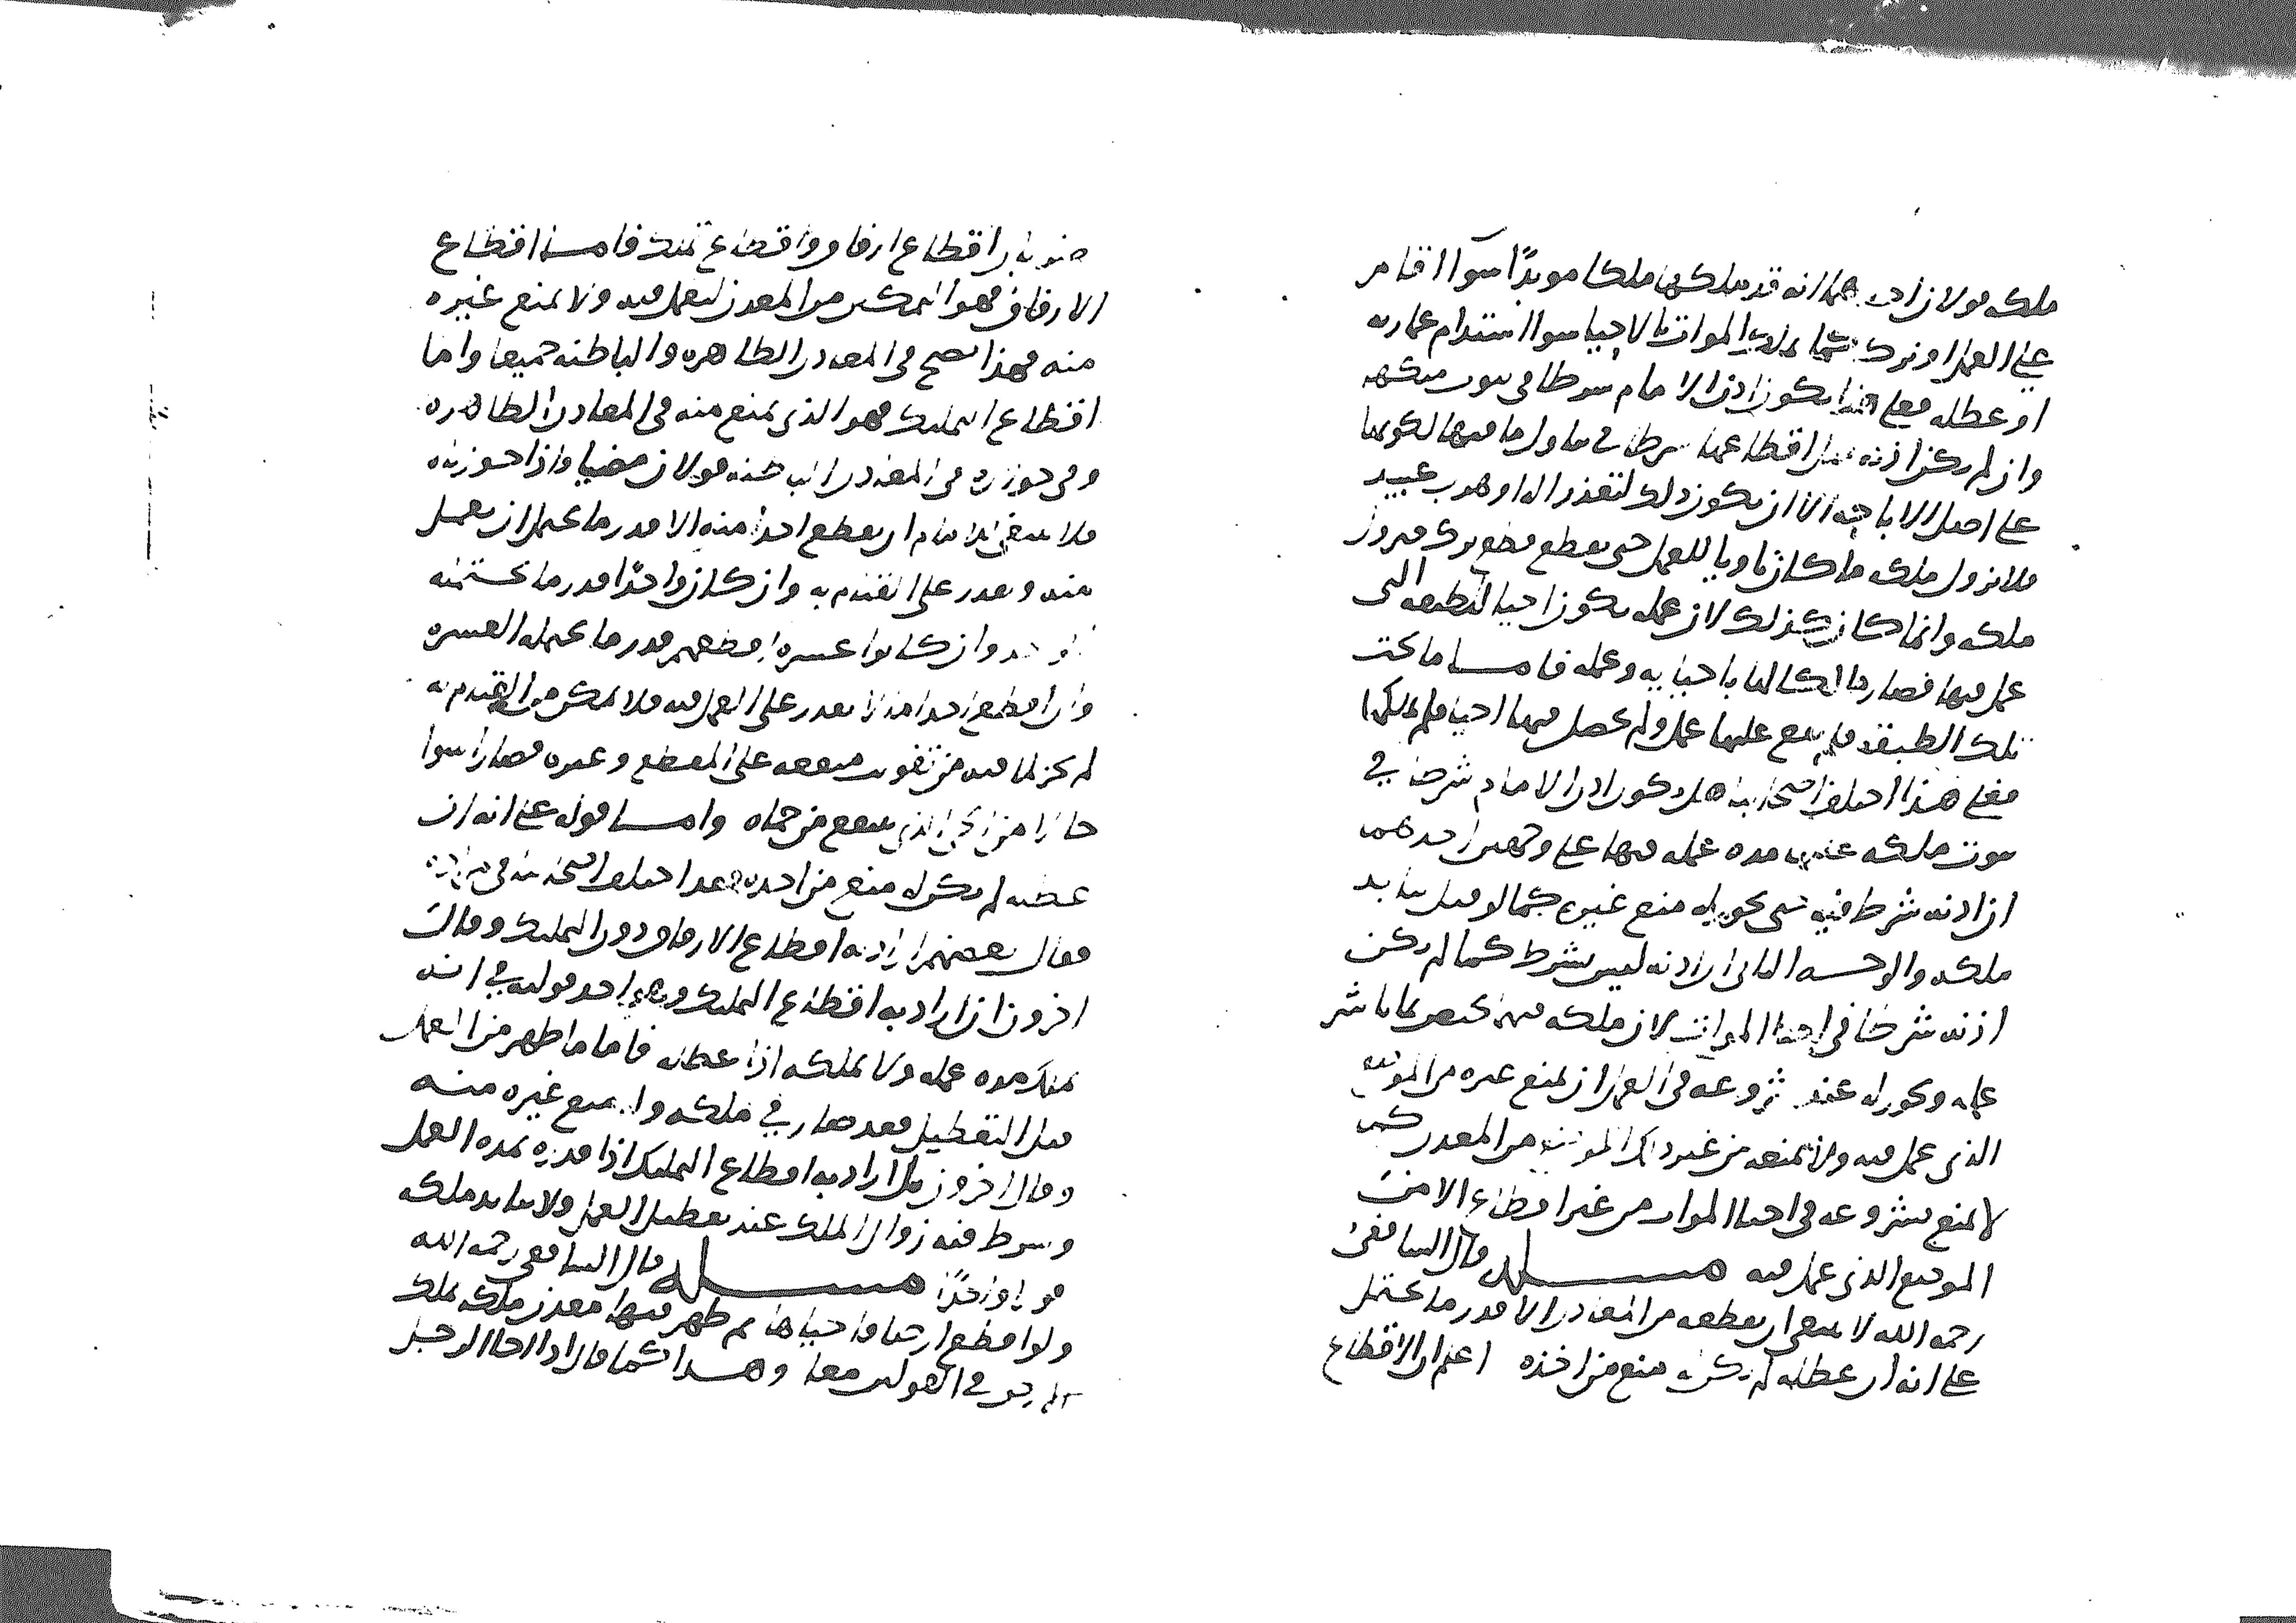 ملكه قولان احدهما انه قد ملكها ملكا موبدًا سوآ اقام
على العمل او ترك كما يملك الموات بالاحيا سوا استدام عمارته
او عطله فعلى هذا يكون اذن الامام شرطا في ثبوت ملكه
وان لم يكن اذنه قبل اقطاعها شرطا في تناول ما فيها لكونها
على اصل الاباحه الا ان يكون ذلك لتعذر الة او هرب عبيد
فلا يزول ملكه ما كان ناويا للعمل حتى يقطع فيزول
ملكه وانما كان كذلك لان عمله يكون احيا للطبقه التي
عمل فيها فصار مالكا لها باحيايه وعمله فاما ما تحت
تلك الطبقه فلم يقع عليها عمل ولم يحصل فيها احيا فلم يملكها
فعلى هذا اختلف اصحابنا هل يكون اذن الامام شرطا في
ثبوت ملكه عليه مده عمله فيها على وجهين احدهما
ان اذنه شرط فيه حتى يجوز له منع غيره كما لو قيل بتابيد
ملكه والوجه الثاني ان اذنه ليس بشرط كما لم يكن
اذنه شرطا في احيا الموات لان ملكه فيه يختص بما باشر
عمله ويجوز له عند شروعه في العمل ان يمنع غيره من الموضع
الذي عمل فيه ولا يمنعه من غير ذلك الموضع من المعدن كما
لا يمنع بشروعه في احيا الموات من غير اقطاع الا من
الموضع الذي عمل فيه مسله قال الشافعي
رحمه الله لا ينبغي ان يقطعه من المعادن الا قدر ما يحتمل
على انه ان عطله لم يكن له منع من اخذه اعلم ان الاقطاع
ضربان اقطاع ارفاق واقطاع تمليك فاما اقطاع
الارفاق فهو التمكين من المعدن ليعمل فيه ولا يمنع غيره
منه فهذا يصح في المعادن الظاهره والباطنه جميعا واما
اقطاع التمليك فهو الذي يمنع منه في المعادن الظاهره
وفي جوازه في المعادن الباطنه قولان مضيا واذا جوزناه
فلا ينبغي للامام ان يقطع احدا منه الا قدر ما يحتمل ان يعمل
فيه ويقدر على القيام به وان كان واحدًا قدر ما يحتمله
الواحد وان كانوا عشره اقطعهم قدر ما يحتمله العشره
وان اقطع احدا ما لا يقدر على العمل فيه ولا يمكن من القيام به
لم يجز لما فيه من تفويت منفعه على المقطع وغيره فصار اسوا
حالا من الحمى الذي ينتفع من حماه واما قوله على انه ان
عطله لم يكن له منع من اخذه فقد اختلف اصحابنا في مراده
فقال بعضهم اراد به اقطاع الارفاق دون التمليك وقال
اخرون اراد به اقطاع التمليك وهو احد قوليه في انه
يملك مده عمله ولا يملكه اذا عطله فاما ما ظهر من العمل
قبل التعطيل فقد صار في ملكه وله منع غيره منه
وقال اخرون بل اراد به اقطاع التمليك اذا قدره بمده العمل
وشرط فيه زوال الملك عند تعطيل العمل ولا يتابد ملكه
قولا واحدًا مسله قال الشافعي رحمه الله
ولو اقطع ارضا فاحياها ثم ظهر فيها معدن ملكه ملك
الارض في القولين معا وهذا كما قال اذا احيا الرجل